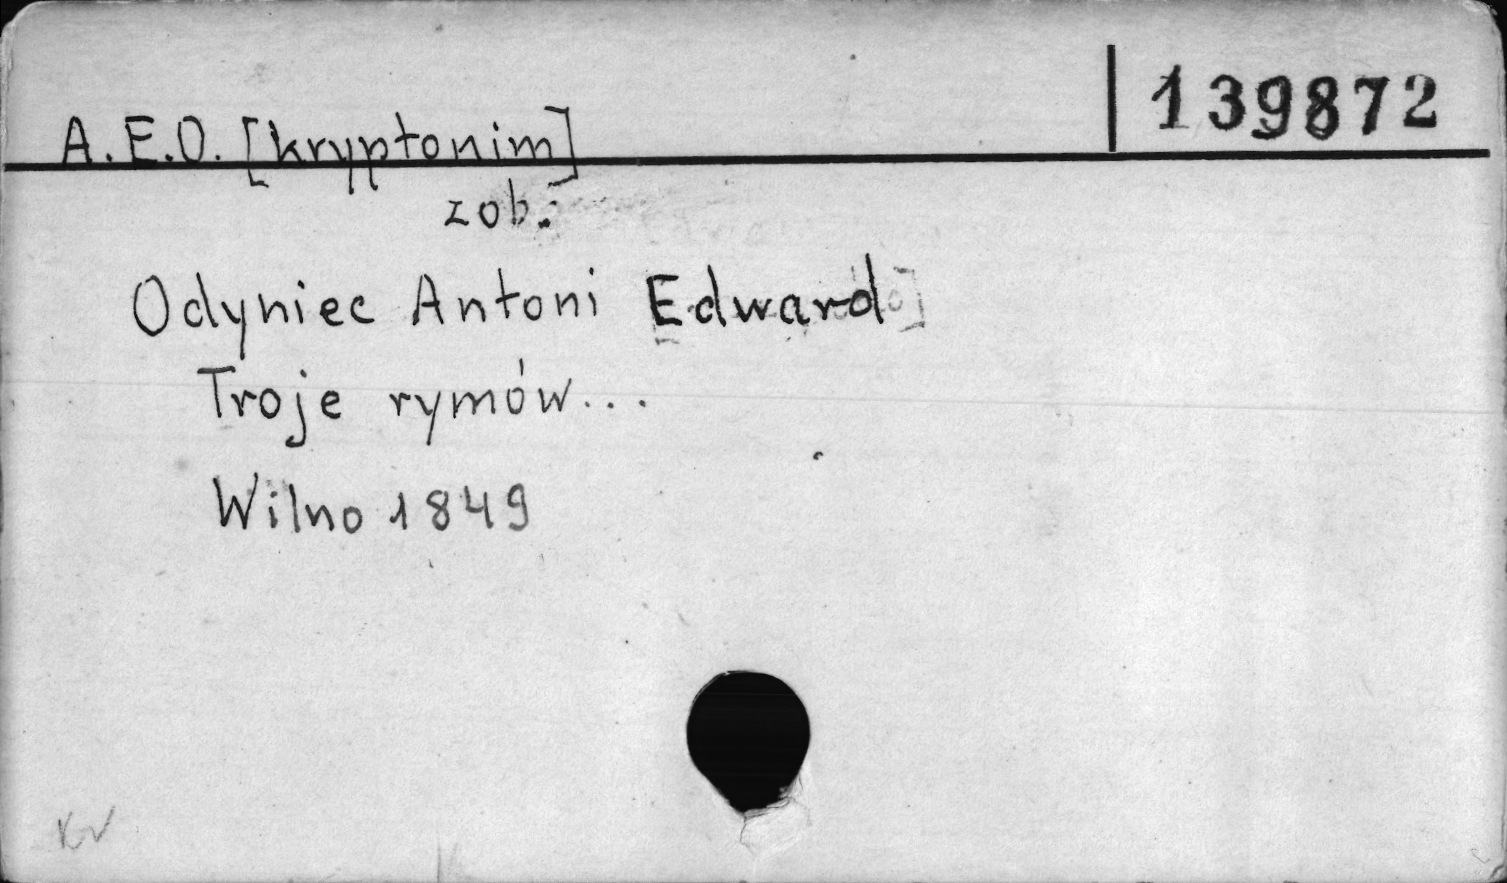 139872
A.E.O. [kryptonim]
zob.
Odyniec Antoni Edward
Troje rymów...
Wilno 1849